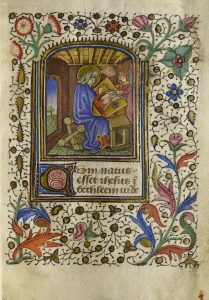 Cum natus
esset ihesus i
bethleem iude